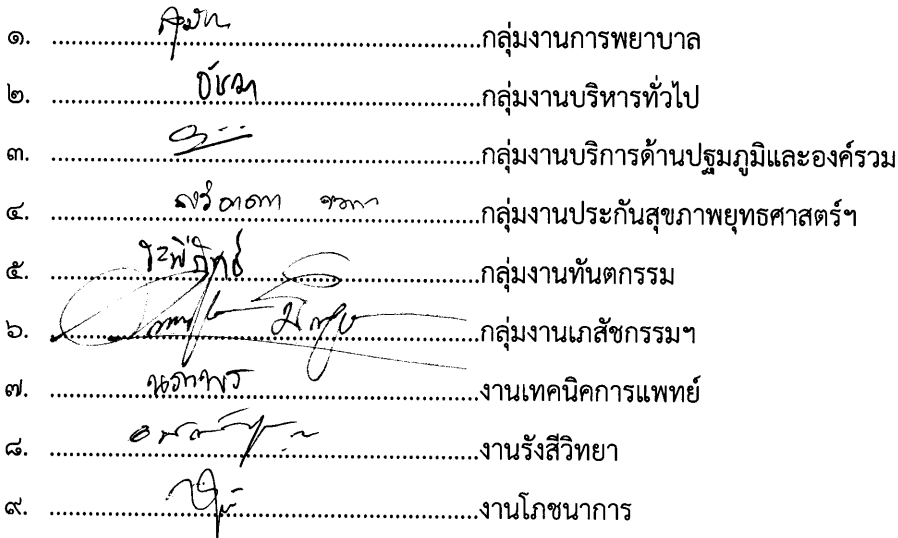 ๑. ................กลุ่มงานการพยาบาล
๒. ................กลุ่มงานบริหารทั่วไป
๓. ................กลุ่มงานบริการด้านปฐมภูมิและองค์รวม
๔. ................กลุ่มงานประกันสุขภาพยุทธศาสตร์ฯ
๕. ................กลุ่มงานทันตกรรม
๖. ................กลุ่มงานเภสัชกรรมฯ
๗. นภาพร................งานเทคนิคการแพทย์
๘. ................งานรังสีวิทยา
๙. ................งานโภชนาการ